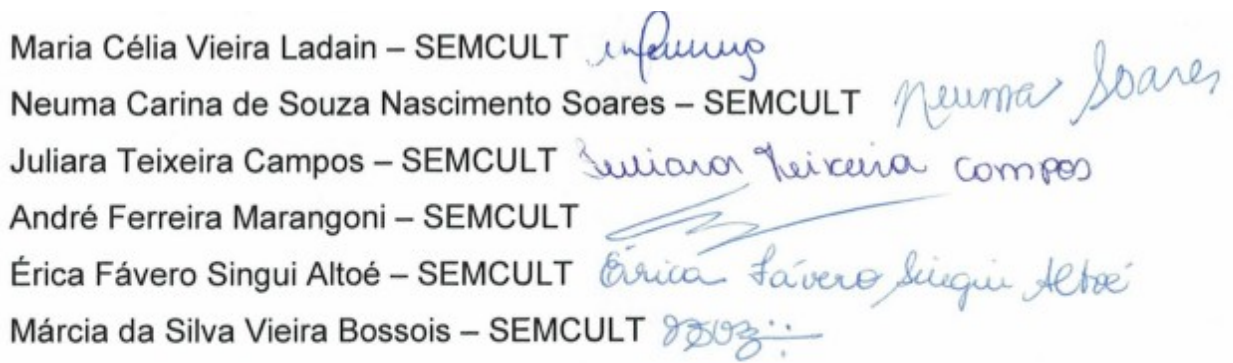 Maria Célia Vieira Ladain – SEMCULT
Neuma Carina de Souza Nascimento Soares – SEMCULT Neuma Soares
Juliara Teixeira Campos – SEMCULT Juliara Teixeira Campos
André Ferreira Marangoni – SEMCULT
Érica Fávero Singui Altoé – SEMCULT Érica Fávero Singui Altoé
Márcia da Silva Vieira Bossois – SEMCULT